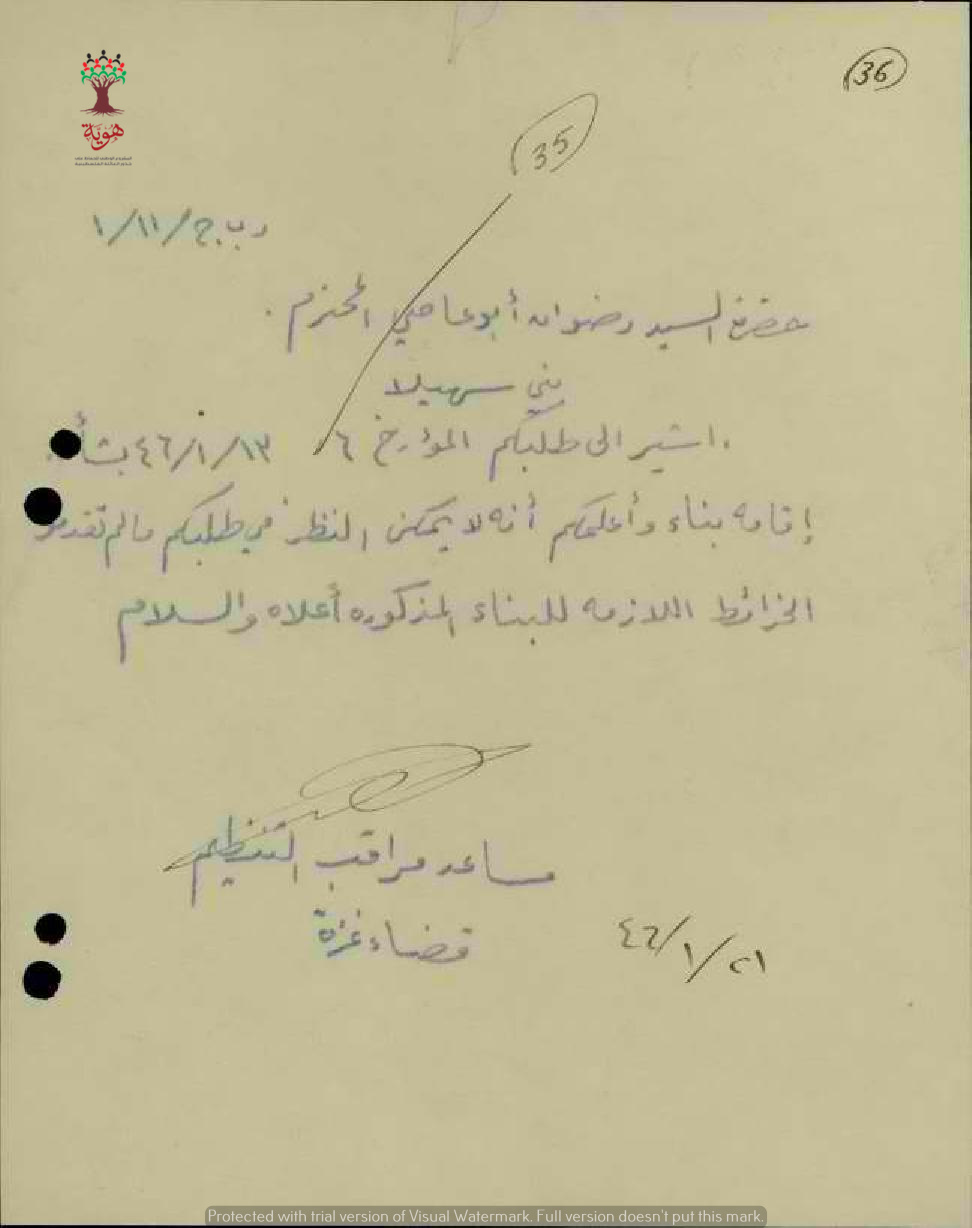 36
35
هوية
ر ب ج/١١/١
حضرة السيد رضوان أبو عاصي المحترم.
بني سهيلا
اشير الى طلبكم المؤرخ ١٣/١/٤٦ بشأن
إقامة بناء وأعلمكم أنه لا يمكن النظر في طلبكم مالم تقدموا
الخرائط اللازمه للبناء المذكوره أعلاه والسلام
مساعد مراقب التنظيم
قضاء غزة
٢١/١/٤٦
Protected with trial version of Visual Watermark. Full version doesn't put this mark.